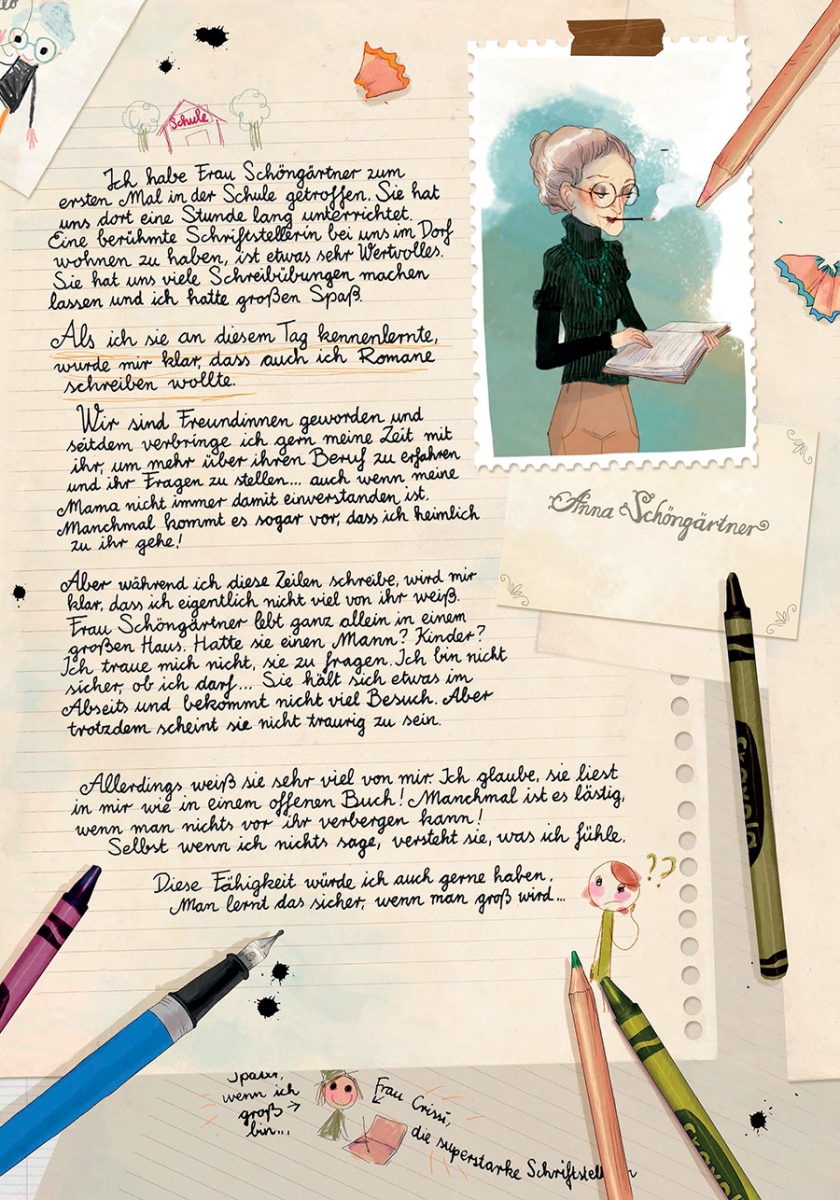 Schule
Ich habe Frau Schöngärtner zum
ersten Mal in der Schule getroffen. Sie hat
uns dort eine Stunde lang unterrichtet.
Eine berühmte Schriftstellerin bei uns im Dorf
wohnen zu haben, ist etwas sehr Wertvolles.
Sie hat uns viele Schreibübungen machen
lassen und ich hatte großen Spaß.
Als ich sie an diesem Tag kennenlernte,
wurde mir klar, dass auch ich Romane
schreiben wollte.
Wir sind Freundinnen geworden und
seitdem verbringe ich gern meine Zeit mit
ihr, um mehr über ihren Beruf zu erfahren
und ihr Fragen zu stellen... auch wenn meine
Mama nicht immer damit einverstanden ist.
Manchmal kommt es sogar vor, dass ich heimlich
zu ihr gehe!
Anna Schöngärtner
Aber während ich diese Zeilen schreibe, wird mir
klar, dass ich eigentlich nicht viel von ihr weiß.
Frau Schöngärtner lebt ganz allein in einem
großen Haus. Hatte sie einen Mann? Kinder?
Ich traue mich nicht, sie zu fragen. Ich bin nicht
sicher, ob ich darf... Sie hält sich etwas im
Abseits und bekommt nicht viel Besuch. Aber
trotzdem scheint sie nicht traurig zu sein.
Allerdings weiß sie sehr viel von mir. Ich glaube, sie liest
in mir wie in einem offenen Buch! Manchmal ist es lästig,
wenn man nichts vor ihr verbergen kann!
Selbst wenn ich nichts sage, versteht sie, was ich fühle.
Diese Fähigkeit würde ich auch gerne haben.
Man lernt das sicher, wenn man groß wird...
??
Crayola
wenn ich
groß
bin...
Frau Crissi,
die superstarke